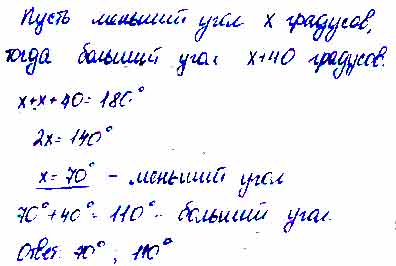 Пусть меньший угол x градусов,
тогда больший угол x+40 градусов.
x+x+40=180°
2x=140°
x=70° - меньший угол
70°+40°=110°- больший угол.
Ответ: 70°; 110°